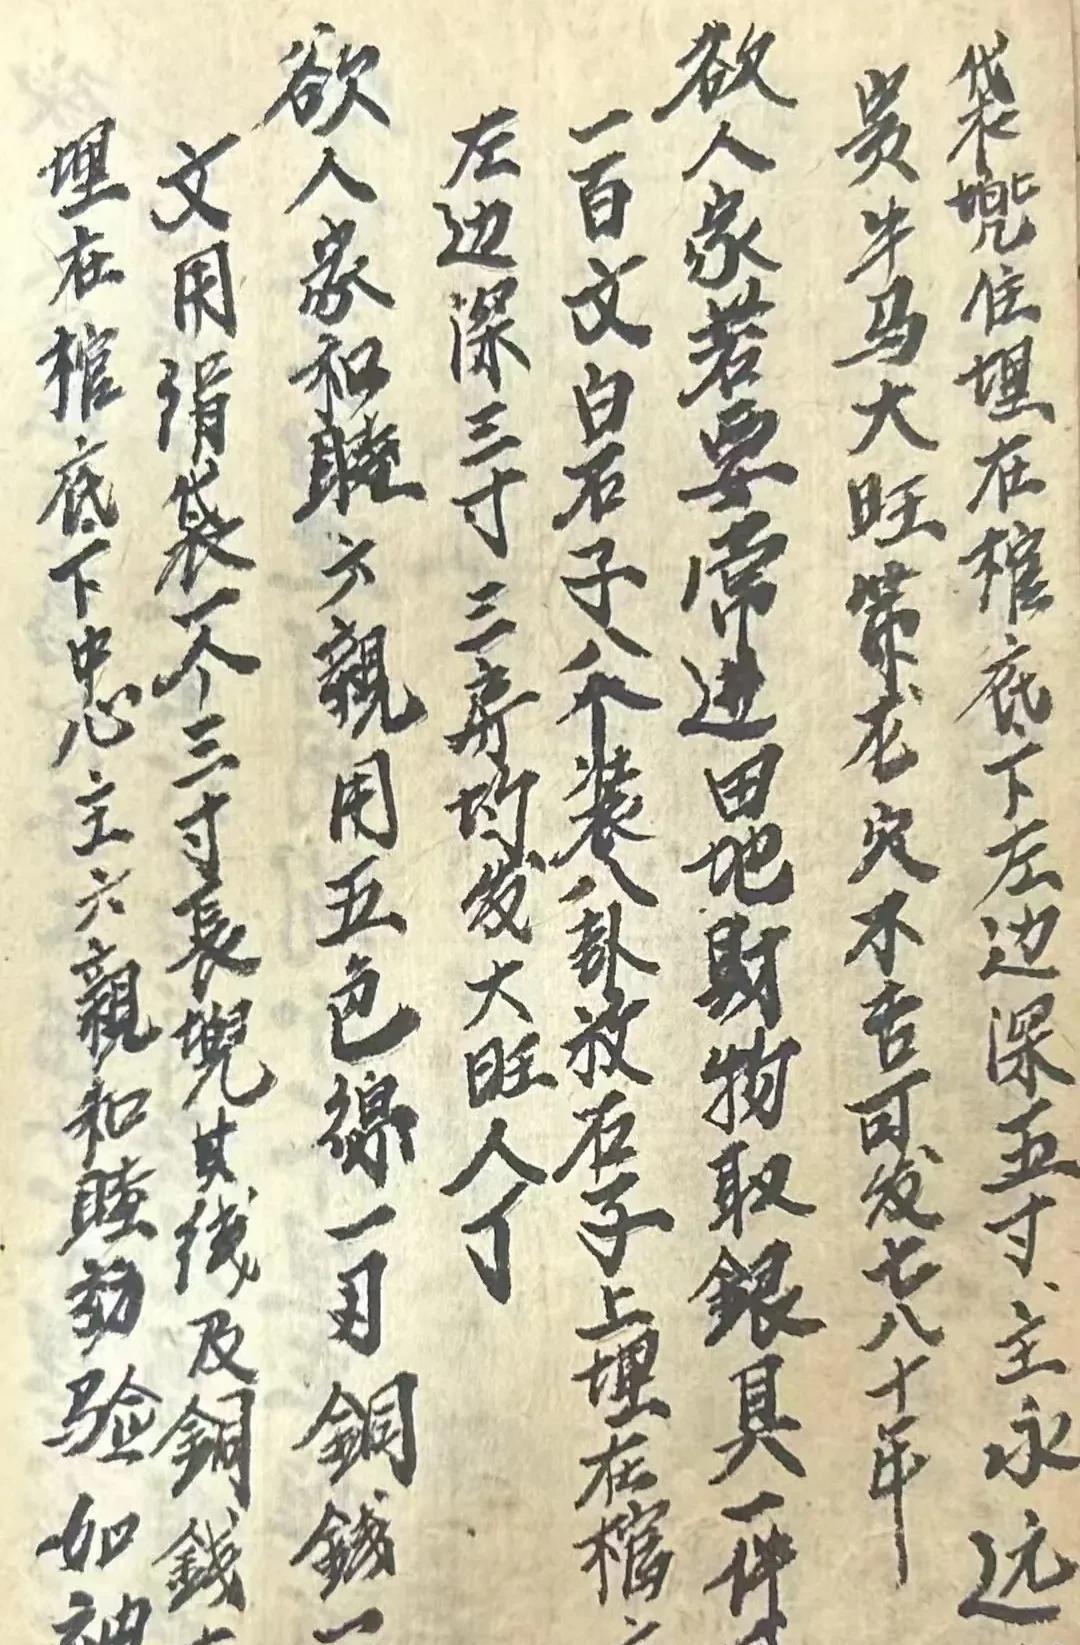 袋兜住埋在棺底下左边深五寸、主永远
贵牛马大旺带龙穴不吉可发七八十年
欲人家若要常进田地財物取銀具一件
一百文白石子八个装八卦放石子上埋在棺
左边深三寸三房均发大旺人丁
欲人家和睦六親用五色線一刃銅錢一
文用绢袋一个三寸長兜其线及銅錢
埋在棺底下中心主六親和睦効验如神